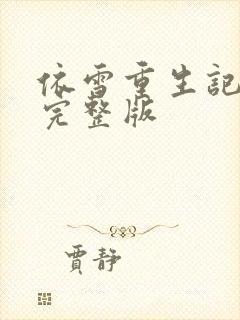 依雪重生記
完整版
賈靜